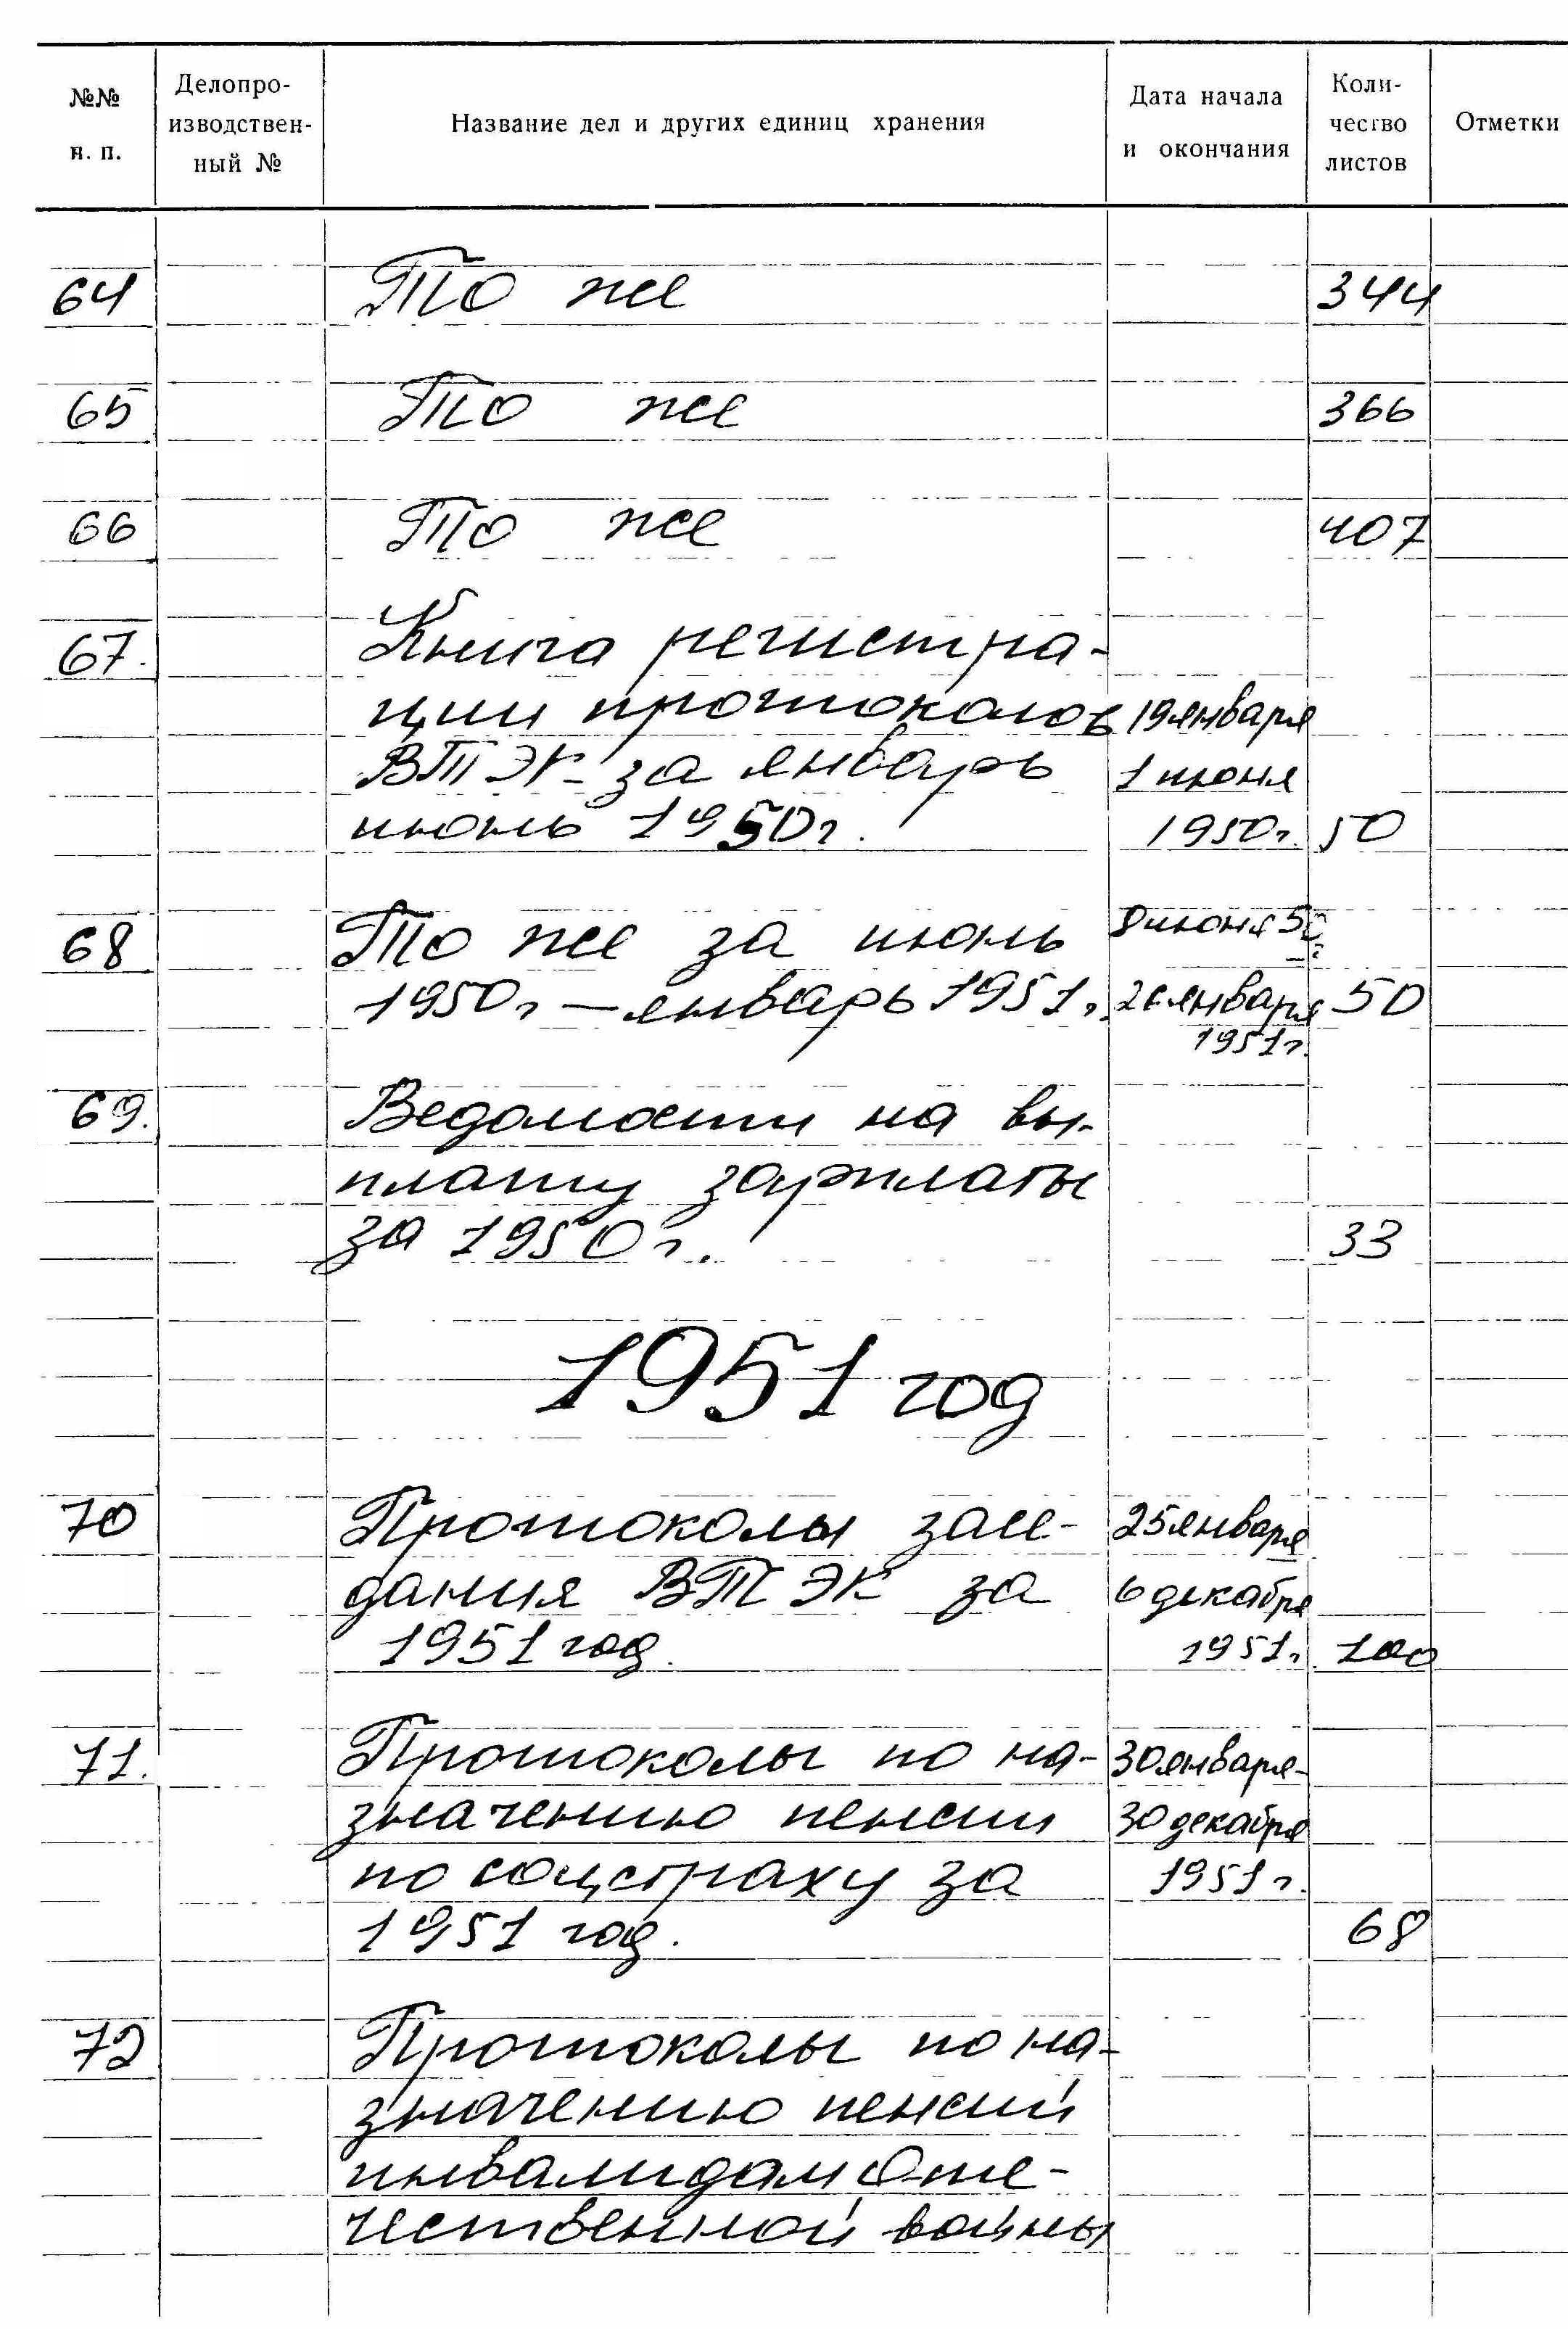 №№ н. п.
Делопро-
изводствен-
ный №
Название дел и других единиц хранения
Дата начала
и окончания
Коли-
чество
листов
Отметки
64 То же 344
65 То же 366
66 То же 407
67. Книга регистра-
ции протоколов 19 января
ВТЭК за январь 1 июня
июнь 1950г. 1950г. 50
68 То же за июнь 8 июня 50
1950г — январь 1951г. 26 января 50
1951г.
69. Ведомости на вы-
плату зарплаты
за 1950г. 33
1951 год
70 Протоколы засе- 25 января
дания ВТЭК за 6 декабря
1951 год. 1951г. 100
71. Протоколы по на- 30 января-
значению пенсии 30 декабря
по соцстраху за 1951г.
1951 год. 68
72 Протоколы по на-
значению пенсий
инвалидам Оте-
чественной войны